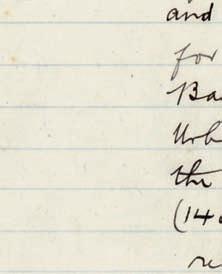 and
for
Ba
Urb
the
(14
re